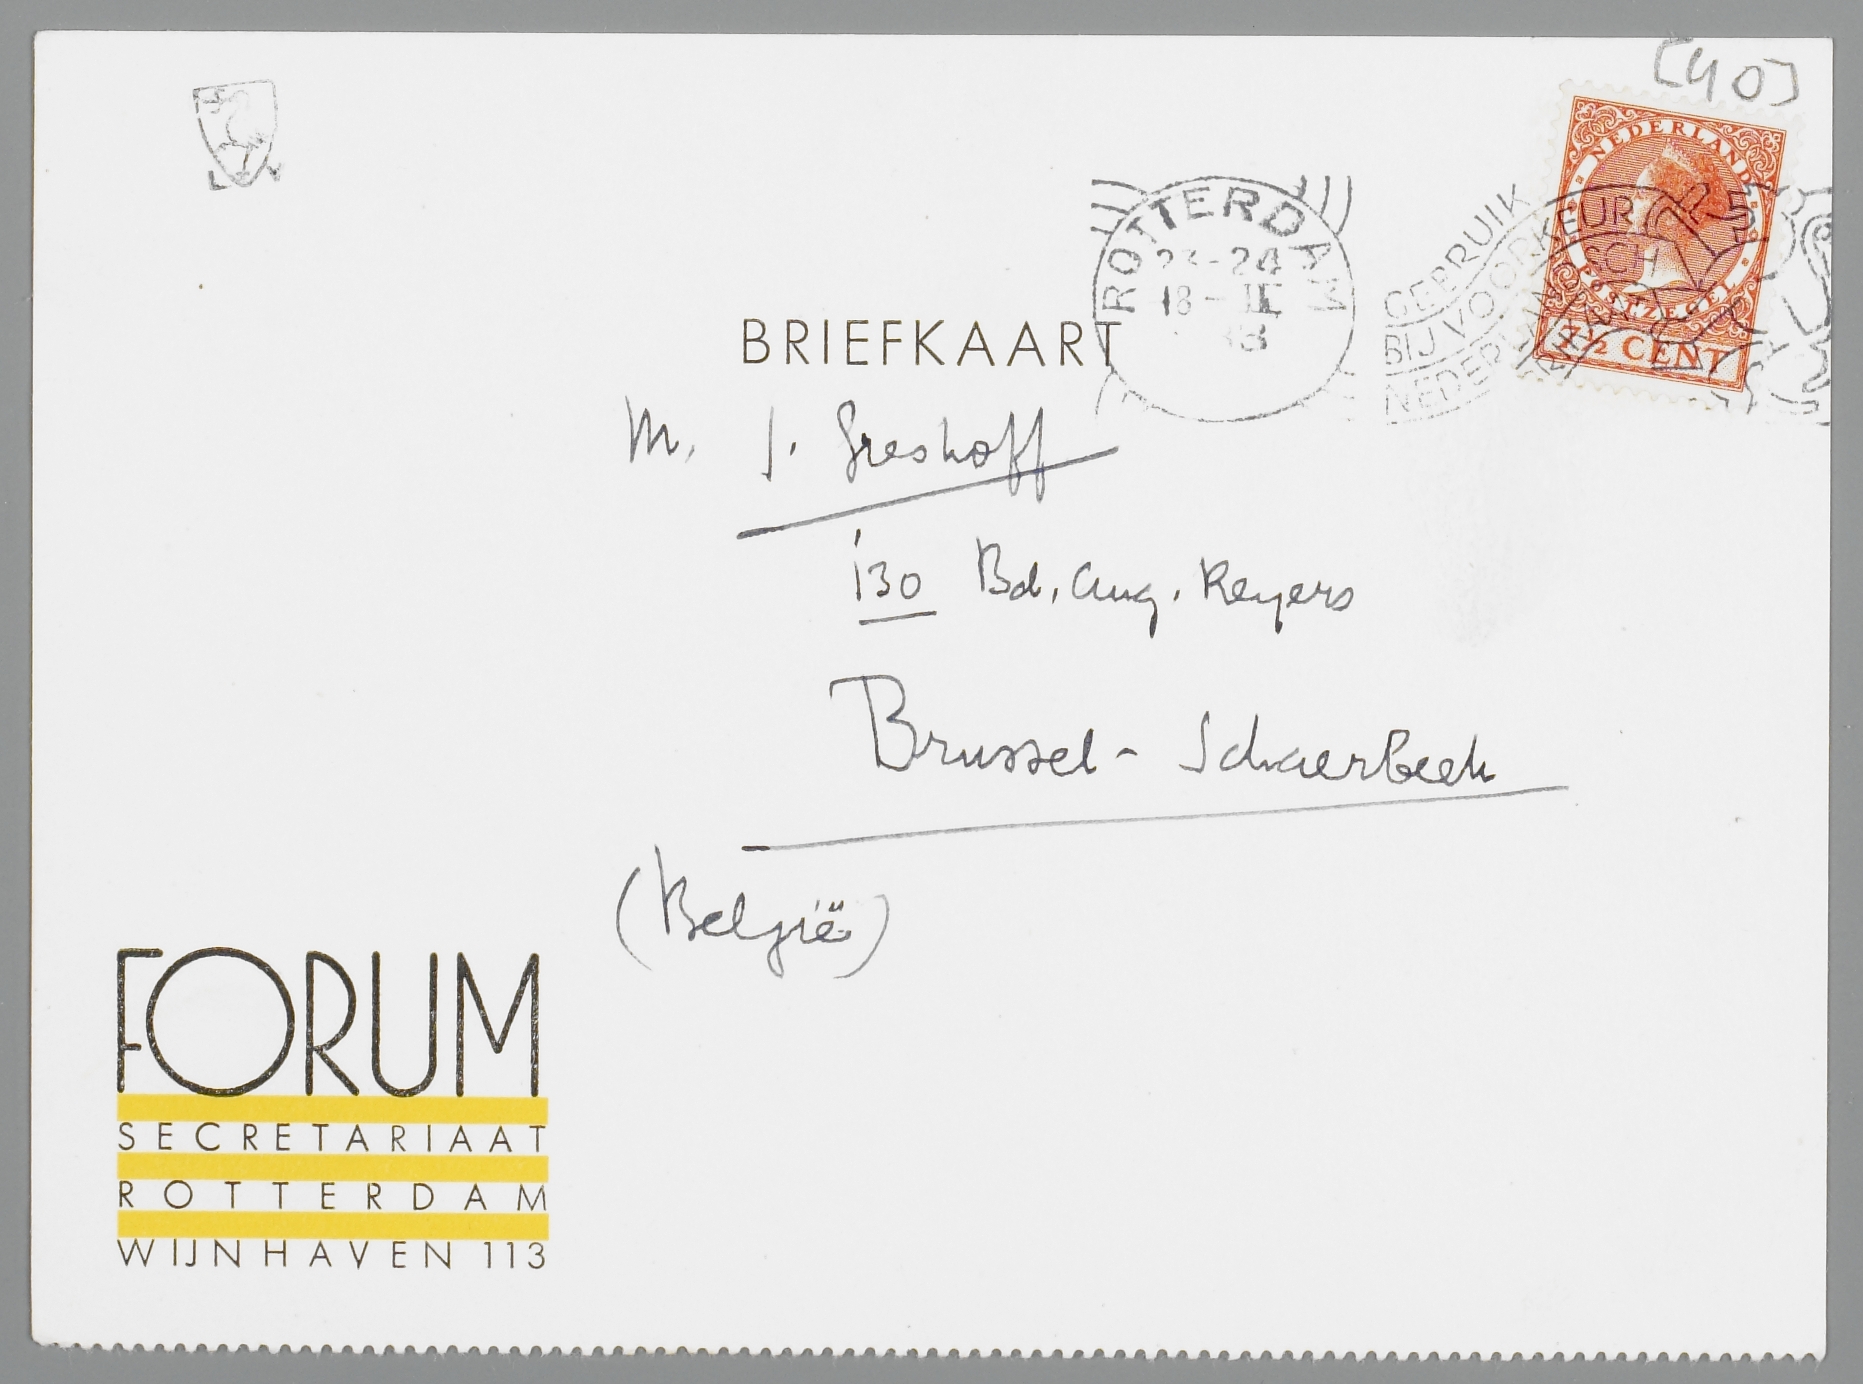 [40]
NEDERLAND
POSTZEGEL
7½ CENT
ROTTERDAM
23-24
18-II
33
GEBRUIK
BIJ VOORKEUR
BRIEFKAART
M. J. Greshoff
130 Bd. Aug. Reyers
Brussel - Schaerbeek
(België)
FORUM
SECRETARIAAT
ROTTERDAM
WIJNHAVEN 113